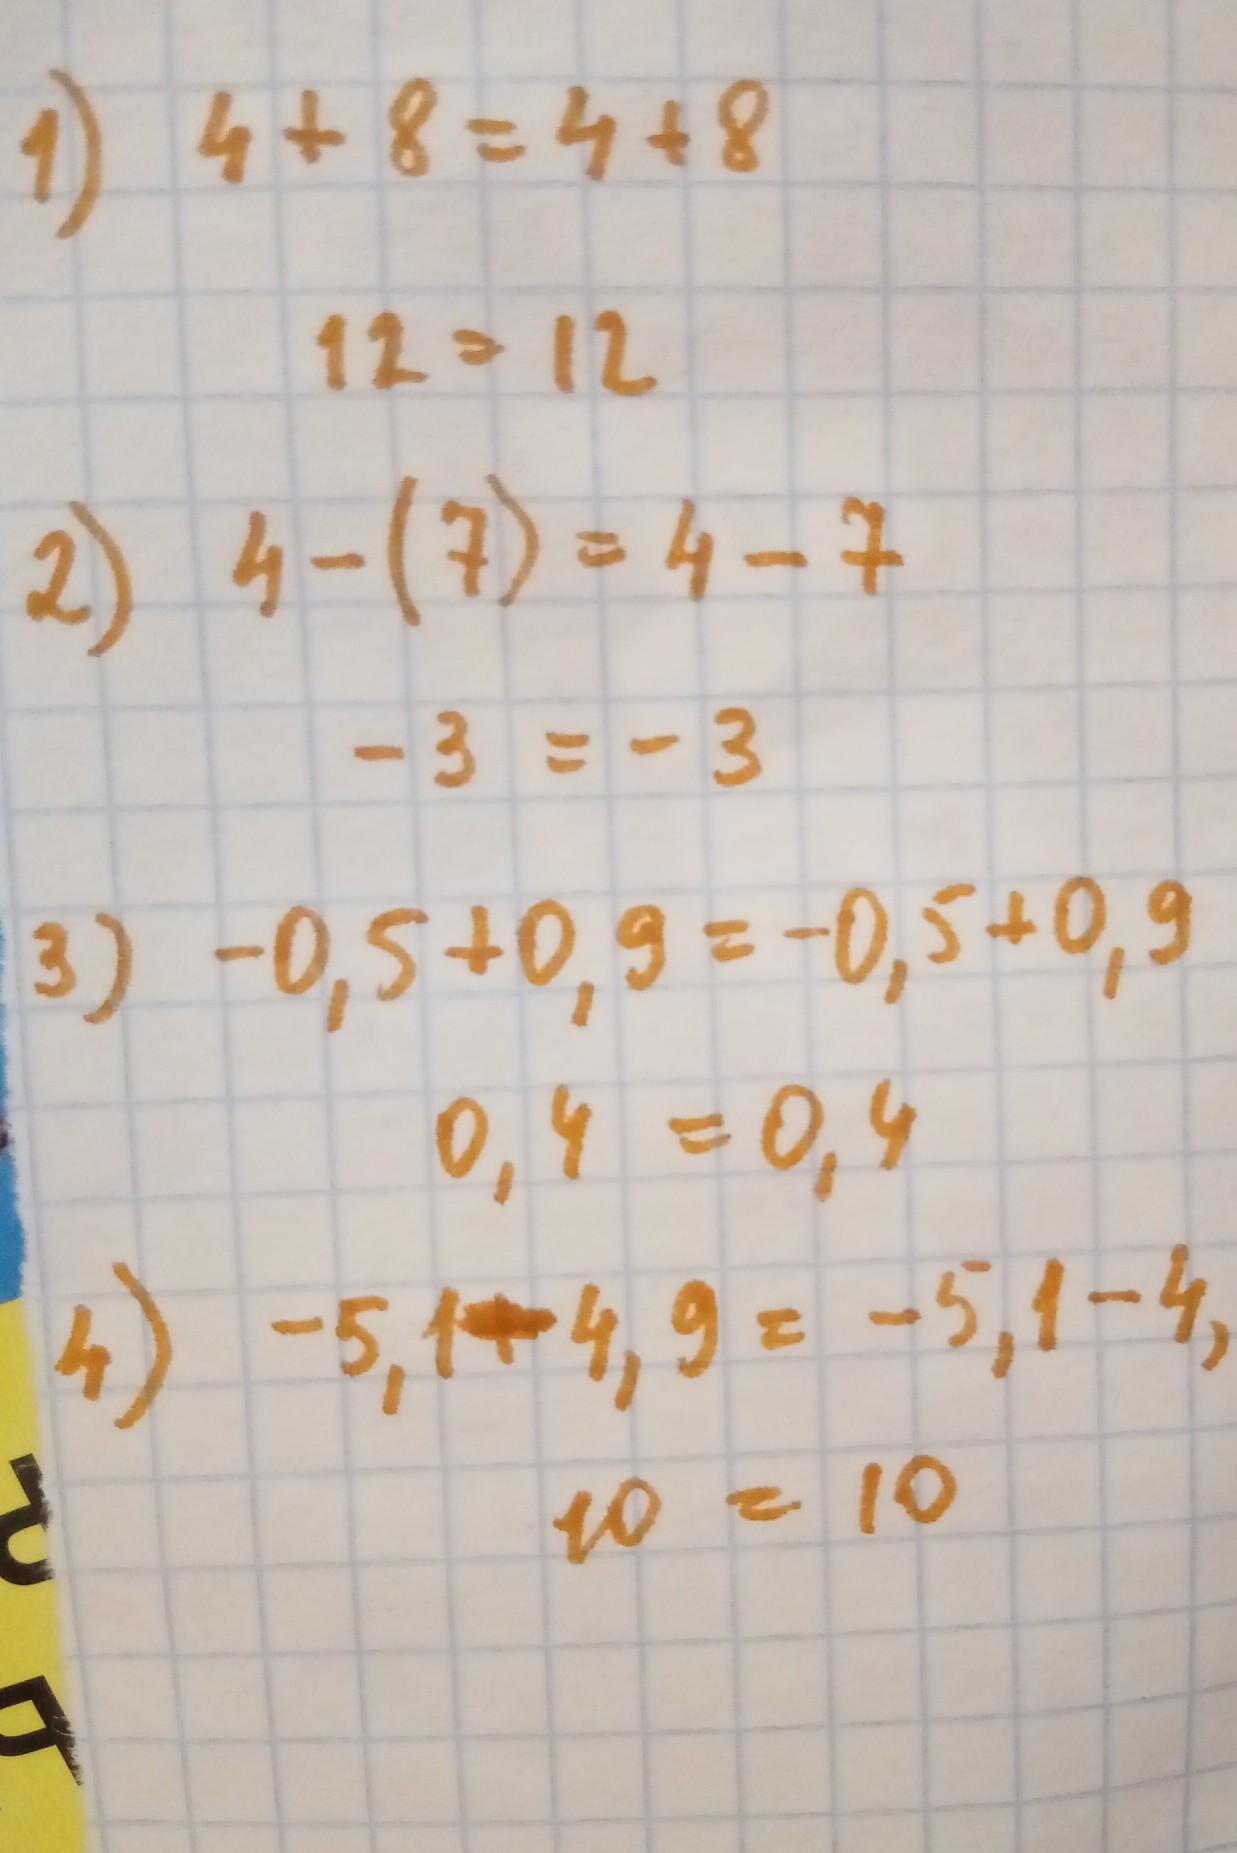 1) 4 + 8 = 4 + 8
12 = 12
2) 4 - (7) = 4 - 7
-3 = -3
3) -0,5+0,9 = -0,5+0,9
0,4 = 0,4
4) -5,1 4,9 = -5,1-4,
10 = 10